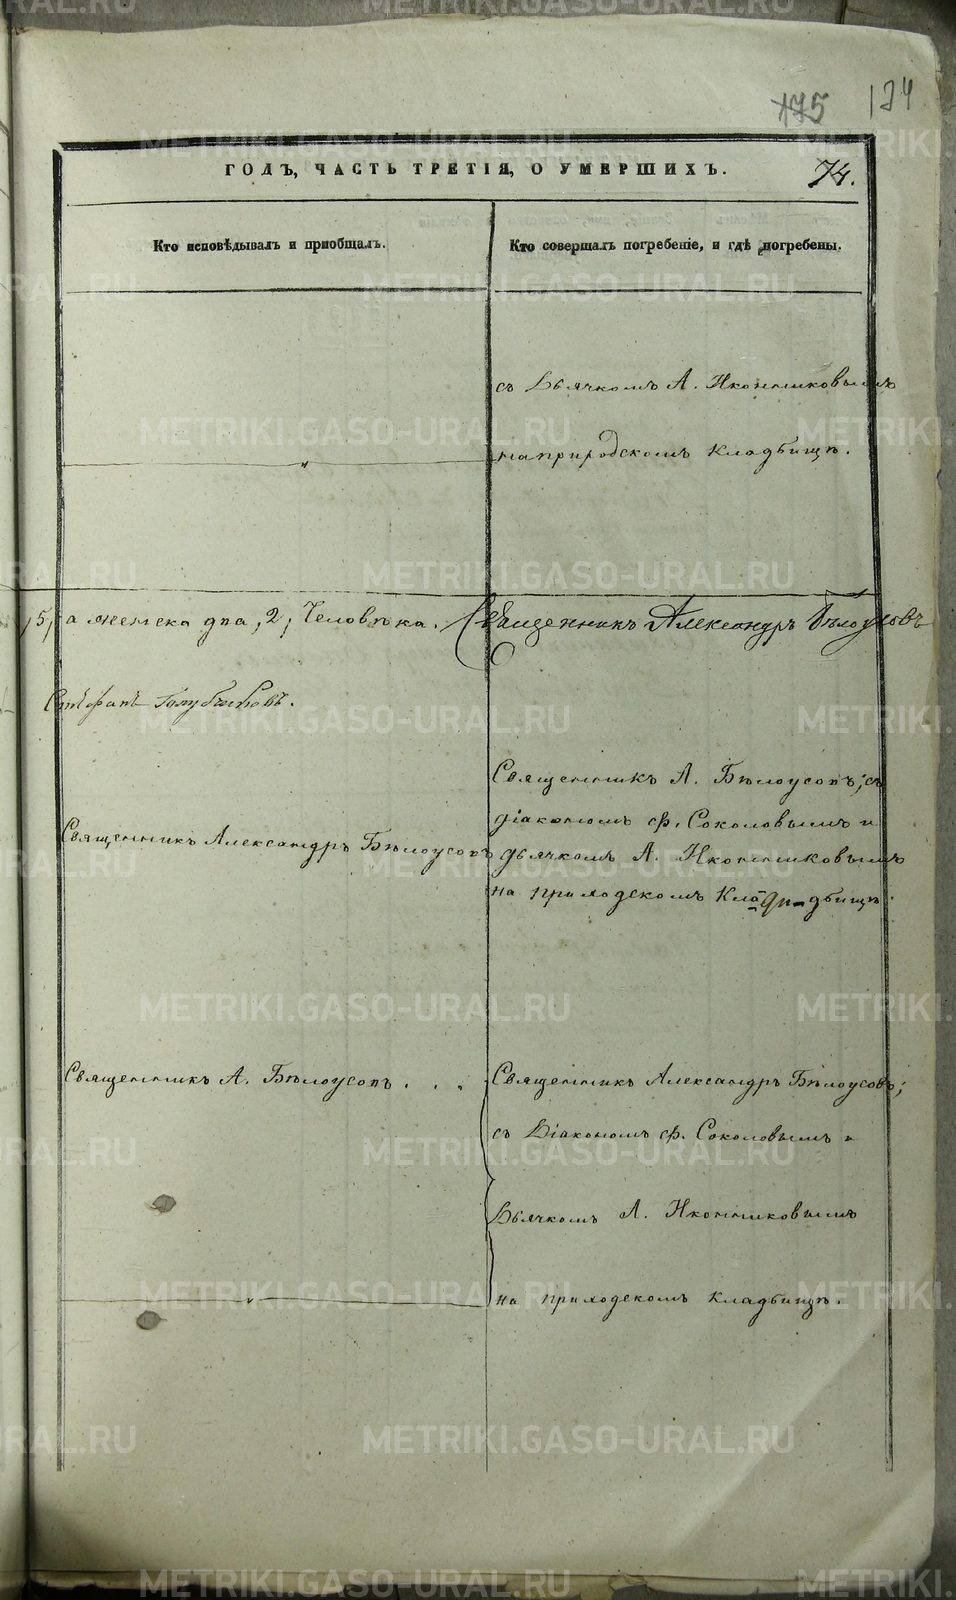 175 124
ГОДЪ, ЧАСТЬ ТРЕТІЯ, О УМЕРШИХЪ. 74.
Кто исповѣдывалъ и приобщалъ.
Кто совершалъ погребеніе, и гдѣ погребены.
съ Дьячкомъ А. Иконниковымъ
на приходскомъ кладбищѣ.
,5, а женска два, 2, человѣка.
Священникъ Александръ Бѣлоусовъ
Стефанъ Голубчиковъ.
Священникъ А. Бѣлоусовъ; съ
діакономъ Ф. Соколовымъ и
Священникъ Александръ Бѣлоусовъ
дьячкомъ А. Иконниковымъ
на приходскомъ Кладбищѣ.
Священникъ А. Бѣлоусовъ . . .
Священникъ Александръ Бѣлоусовъ;
съ Діакономъ Ф. Соколовымъ и
Дьячкомъ А. Иконниковымъ
на приходскомъ кладбищѣ.
METRIKI.GASO-URAL.RU